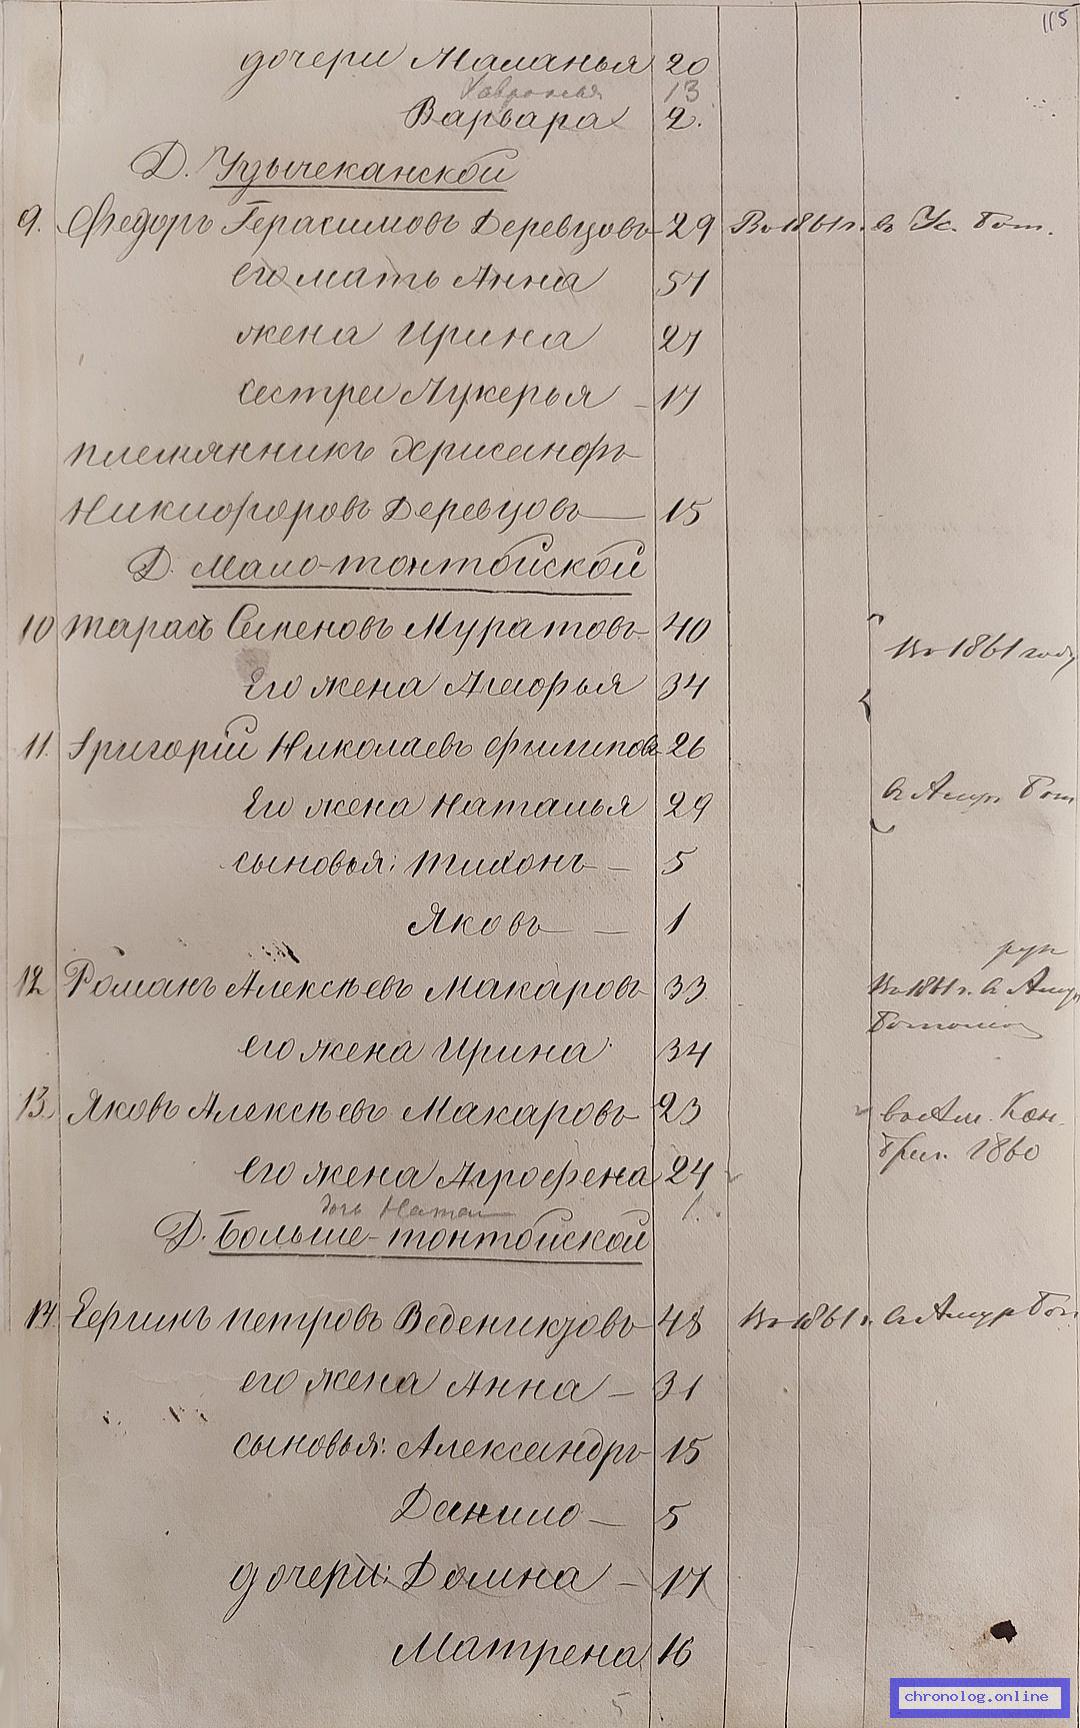 115
дочери Маланья 20
Хавронья 13
Варвара 2.
Д. Узычеканской
9. Федоръ Герасимовъ Деревцовъ 29 Въ 1861 г. въ Ус. бат.
его мать Анна 57
жена Ирина 27
сестра Лукерья 17
племянникъ Хрисанфъ
Никифоровъ Деревцовъ 15
Д. Мало-тонтойской
10 Тарасъ Семеновъ Муратовъ 40
Въ 1861 году
Его жена Агафья 34
11. Григорій Николаевъ Филиповъ 26
въ Амур. бат
Его жена Наталья 29
сыновья: Тихонъ 5
Яковъ 1
12 Романъ Алексѣевъ Макаровъ 33 Въ 1861 г. въ Амур
его жена Ирина 34
13. Яковъ Алексѣевъ Макаровъ 23 въ Ам. Кон.
бриг. 1860
его жена Агрофена 24
дочь Натал 1.
Д. Больше-тонтойской
14. Петровъ Веденикзовъ 48 Въ 1861 г. въ Амур бат
его жена Анна 31
сыновья: Александръ 15
Данило 5
дочери: Домна 17
Матрена 16
chronolog.online